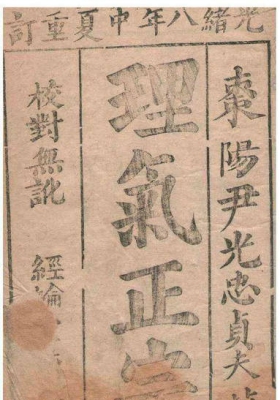 光緒八年中夏重訂
棗陽尹光忠貞夫
理氣正宗
校對無訛 經綸